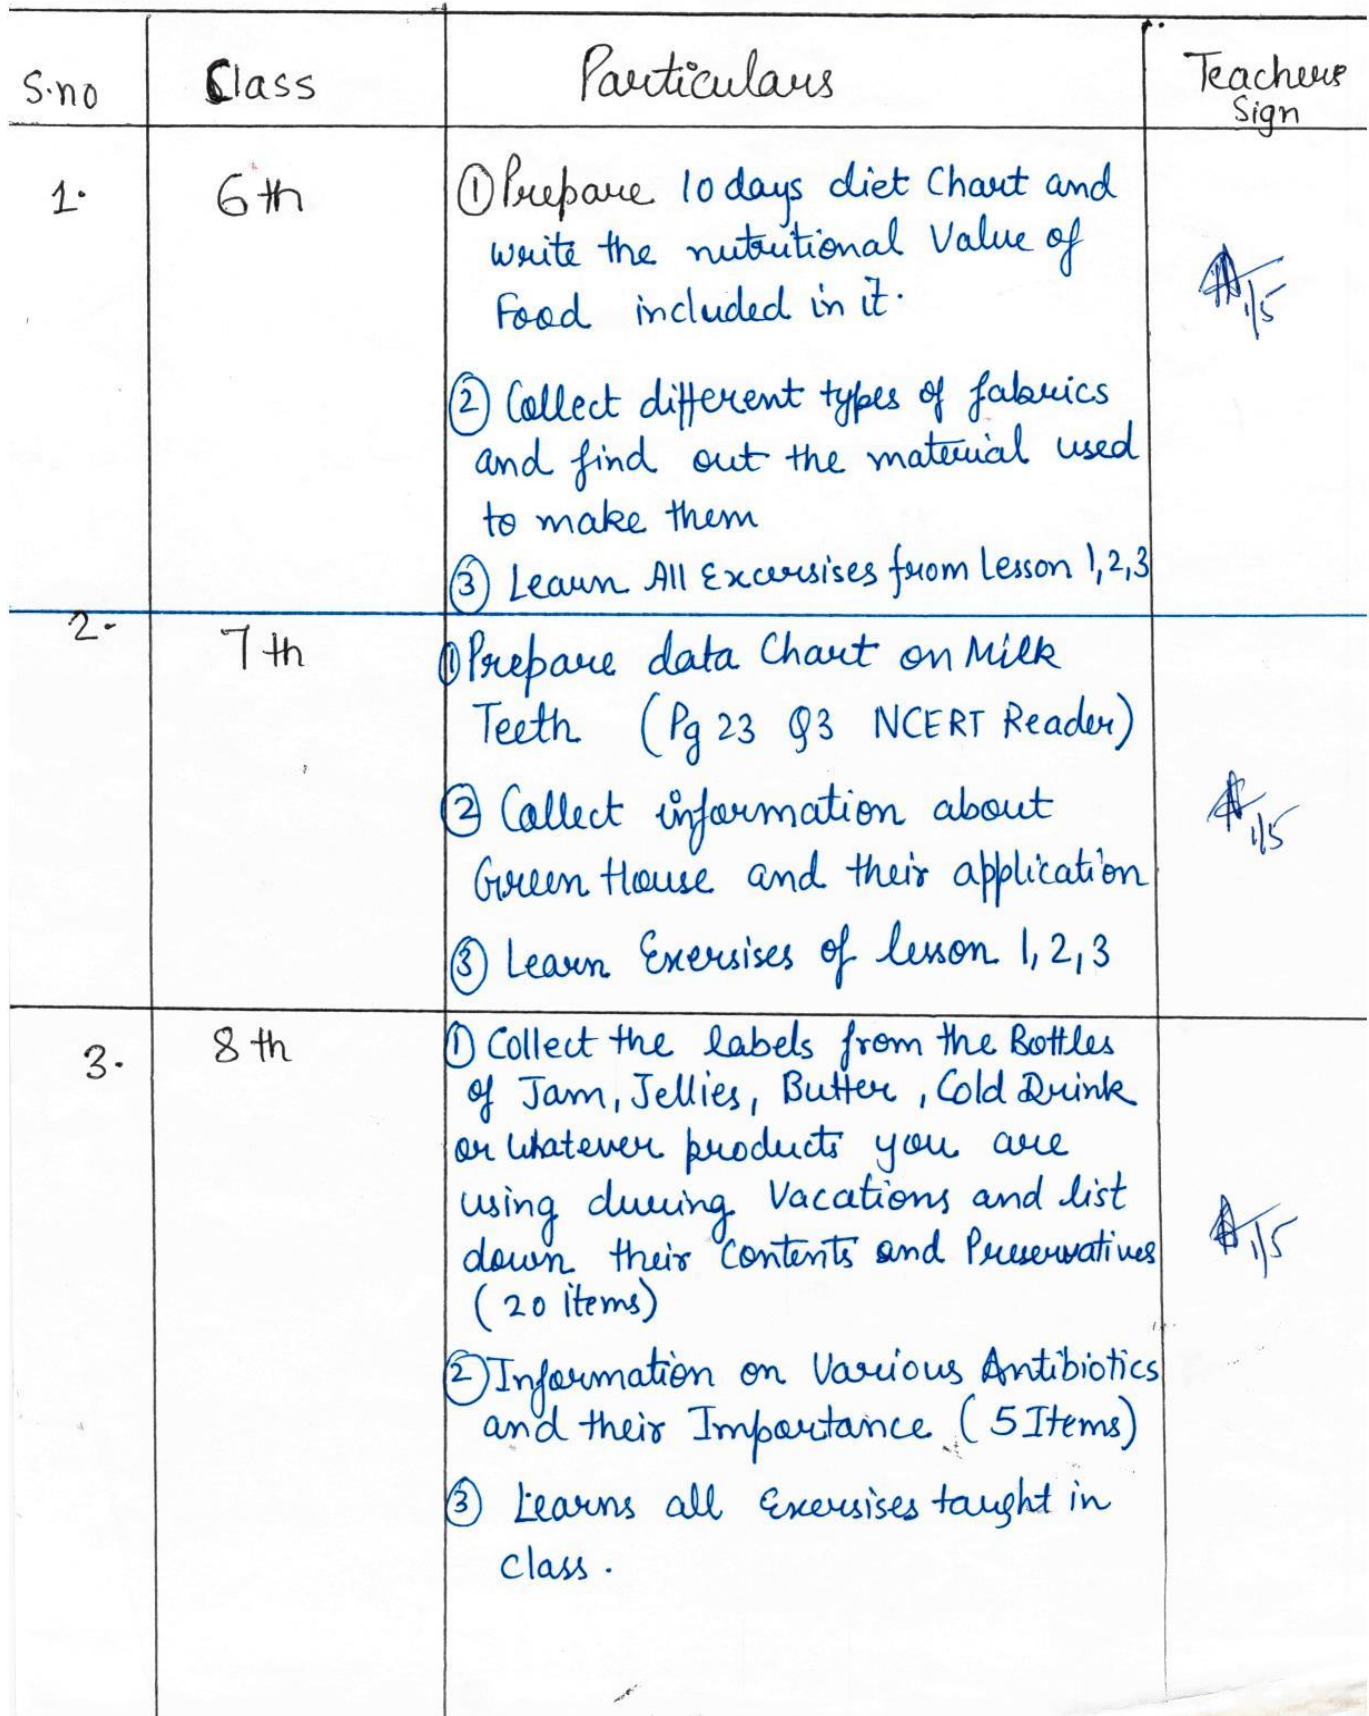 S.no Class Particulars Teachers
Sign
1. 6th ① Prepare 10 days diet Chart and
write the nutritional Value of
Food included in it.
1/5
② Collect different types of fabrics
and find out the material used
to make them
③ Learn All Excersises from Lesson 1,2,3
2. 7th ① Prepare data Chart on Milk
Teeth (Pg 23 Q3 NCERT Reader)
② Collect information about
1/5
Green House and their application
③ Learn Exersises of lesson 1,2,3
3. 8th ① Collect the labels from the Bottles
of Jam, Jellies, Butter, Cold Drink
or Whatever products you are
using during Vacations and list
down their Contents and Preservatives
1/5
(20 items)
② Information on Various Antibiotics
and their Importance (5 Items)
③ Learns all Exersises taught in
class.